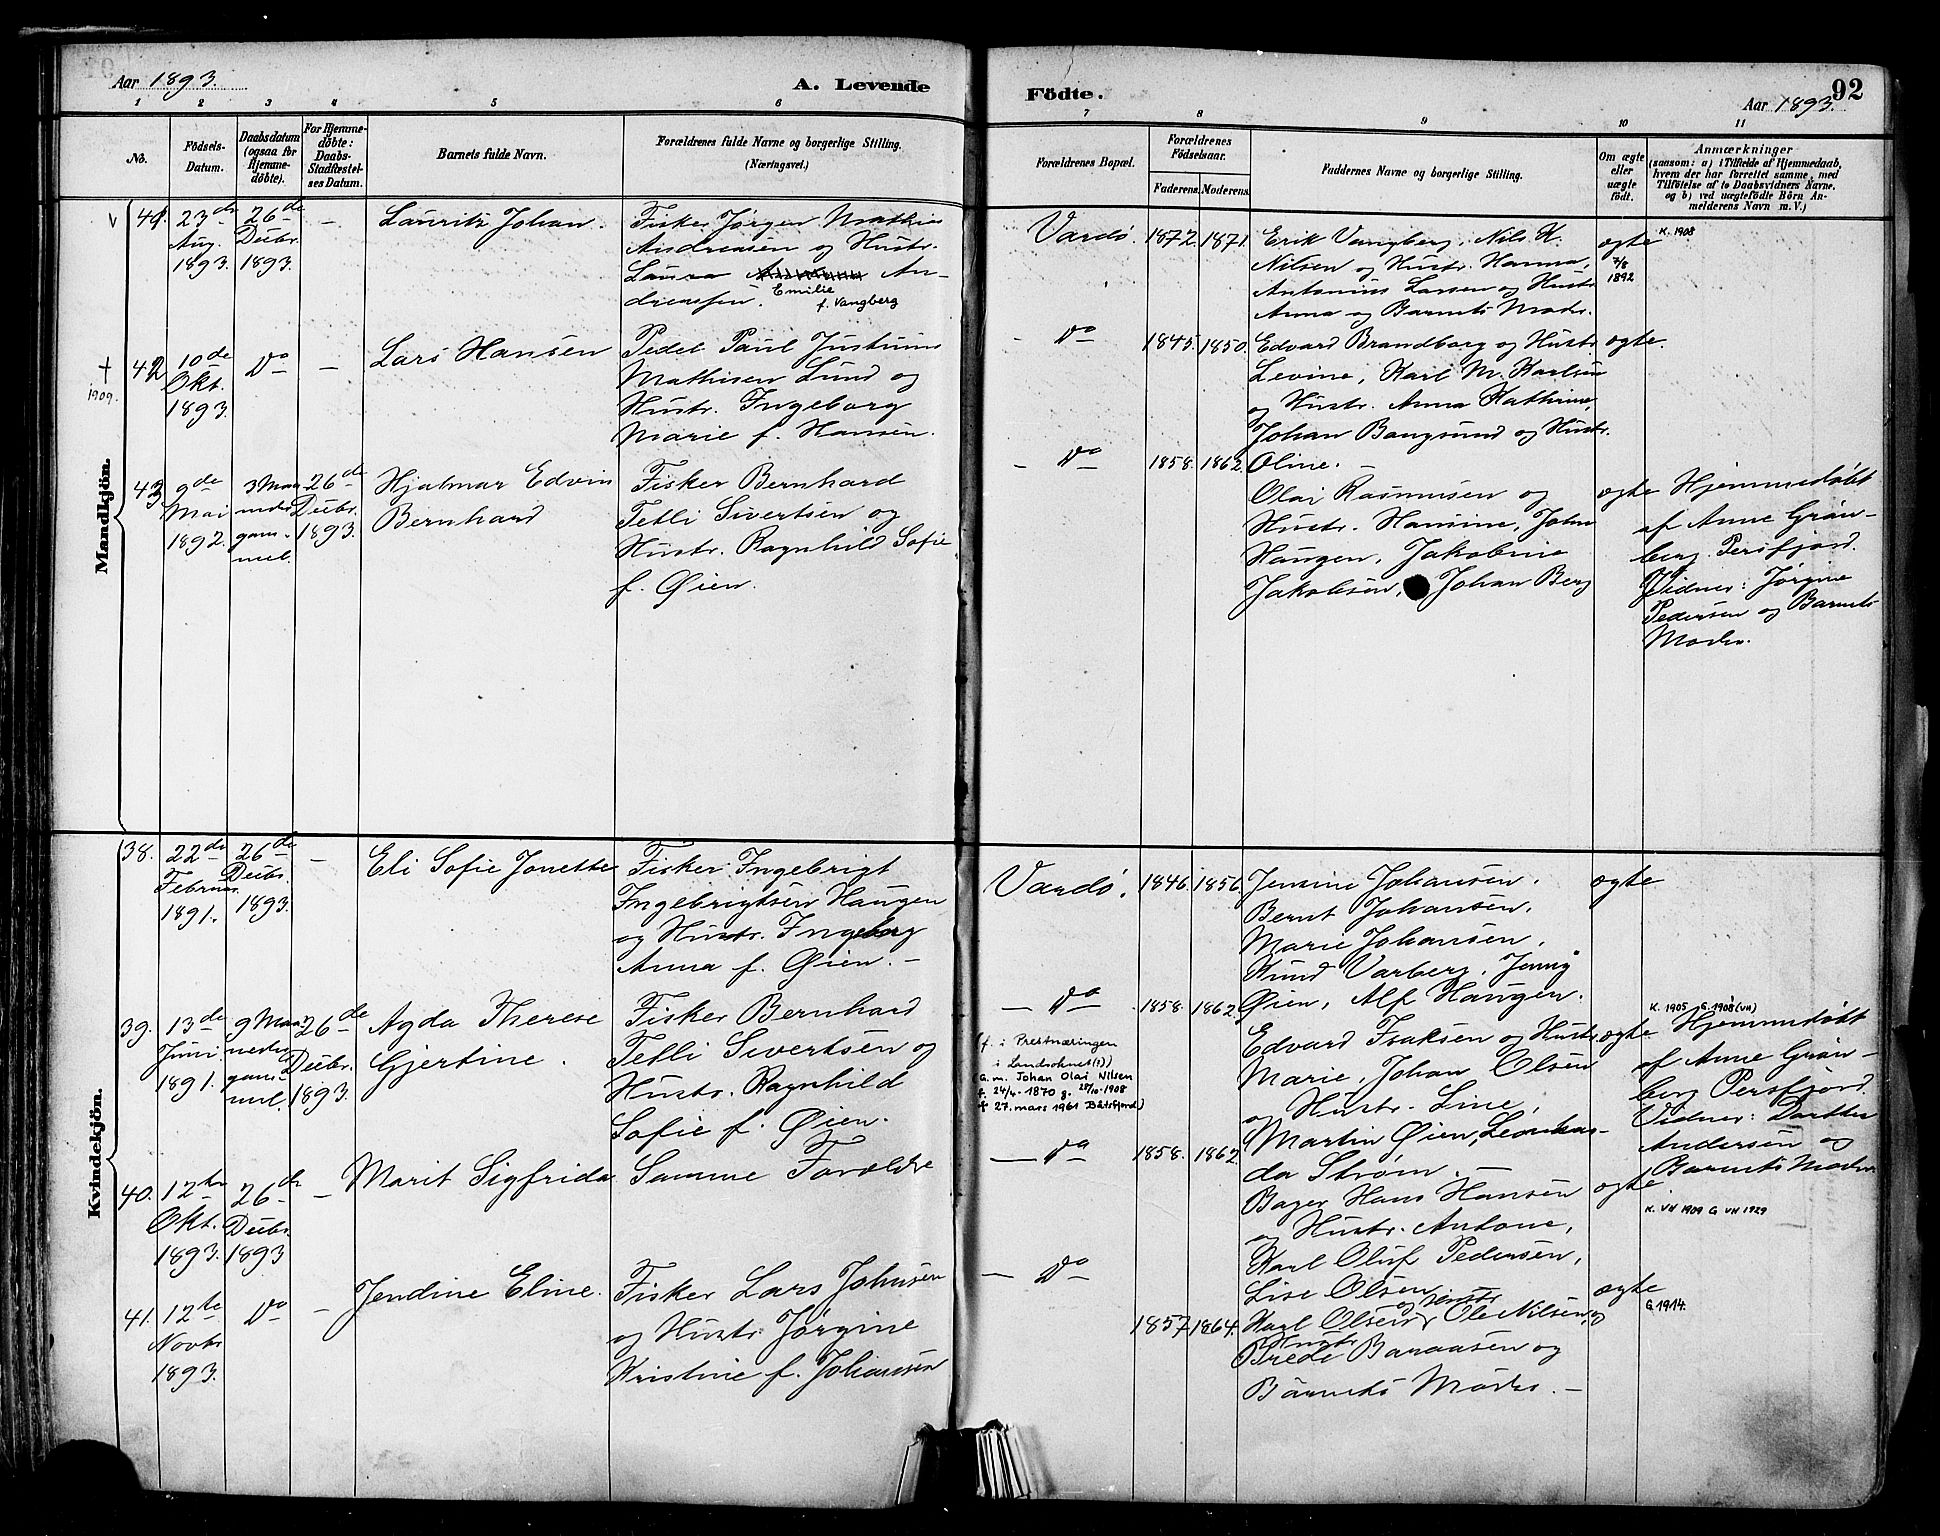 Aar 1893.
A. Levende
Födte.
Aar 1893.
92
1 2 3 4 5 6 7 8 9 10 11
No.
Födsels-
Datum.
Daabsdatum
(ogsaa for
Hjemme-
döbte).
For Hjemme-
döbte:
Daabs-
Stadfæstel-
ses Datum.
Barnets fulde Navn.
Forældrenes fulde Navne og borgerlige Stilling.
(Næringsvei.)
Forældrenes Bopæl.
Forældrenes
Födselsaar.
Faderens.
Moderens.
Faddernes Navne og borgerlige Stilling.
Om ægte
eller
uægte
födt.
Anmærkninger
(saasom: a) i Tilfælde af Hjemmedaab,
hvem der har forrettet samme, med
Tilföielse af to Daabsvidners Navne,
og b) ved uægtefödte Börn An-
melderens Navn m. V.)
Mandkjön.
V
41.
23de
Aug.
1893.
26de
Decbr.
1893.
-
Lauritz Johan.
Fisker Jørgen Mathias
Andreasen og Hustr.
Laura An-
dreassen. Emilie
f. Vangberg
Vardø.
1872.
1871.
Erik Vangberg, Nils K.
Nilsen og Hustr. Hanna,
Antonius Larsen og Hustr.
Anna og Barnets Moder.
ægte
7/8
1892
K. 1908
+
1909.
42
10de
Okt.
1893.
Do
-
Lars Hansen
Pedel Paul Justinus
Mathisen Lund og
Hustr. Ingeborg
Marie f. Hansen.
- Do -
1845.
1850.
Edvard Brandborg og Hustr.
Levine, Karl M. Karlsen
og Hustr. Anna Kathrine,
Johan Bangsund og Hustr.
Oline. -
ægte.
43
9de
Mai
1892.
3 Maa-
neder
gam-
mel.
26de
Decbr.
1893.
Hjalmar Edvin
Bernhard
Fisker Bernhard
Tetli Sivertsen og
Hustr. Ragnhild Sofie
f. Øien.
- Do -
1858.
1862.
Olai Rasmusen og
Hustr. Hansine, John
Haugen, Jakobine
Jakobsen, Johan Berg
ægte
Hjemmedøbt
af Anne Grøn-
berg. Persfjord.
Vidner: Jørgine
Pedersen og Barnets
Moder.
Kvindekjön.
38.
22de
Februar
1891.
26de
Decbr.
1893.
-
Eli Sofie Jonette
Fisker Ingebrigt
Ingebrigtsen Haugen
og Hustr. Ingeborg
Anna f. Øien. -
Vardø.
1846.
1856.
Jensine Johansen.
Bernt Johansen.
Marie Johansen.
Knud Varberg. Jenny
Øien, Alf Haugen.
ægte
39.
13de
Juni
1891.
9 Maa-
neder
gam-
mel.
26de
Decbr.
1893.
Agda Therese
Gjertine.
Fisker Bernhard
Tetli Sivertsen og
Hustr. Ragnhild
Sofie f. Øien.
- Do -
(f. i Prestnæringen
i Landsoknet(!)
G. m. Johan Olai Nilsen
f. 24/4-1870 g. 25/10-1908
† 27. mars 1961 Båtsfjord)
1858.
1862.
Edvard Isaksen og Hustr.
Marie, Johan Olsen
og Hustr. Line,
Martin Øien, Leonhar-
da Strøm. -
ægte
K. 1905 G. 1908 (VH)
Hjemmedøbt
af Anne Grøn-
berg Persfjord.
Vidner: Dorthea
Andersen og
Barnets Moder.
40.
12te
Okt.
1893.
26de
Decbr.
1893
-
Marit Sigfrida
Samme Forældre
- Do -
1858.
1862.
Bager Hans Hansen
og Hustr. Antone,
Karl Oluf Pedersen,
Lise Olsen
ægte
K. VH 1909 G VH 1929
41.
12te
Novbr
1893.
Do
-
Jendine Eline.
Fisker Lars Johnsen
og Hustr. Jørgine
Kristine f. Johansen
- Do -
1857
1864.
Karl Olsen og Hustr. Ole Nilsen og
Hustr.
Brede Baraasen og
Barnets Moder. -
ægte
G. 1914.